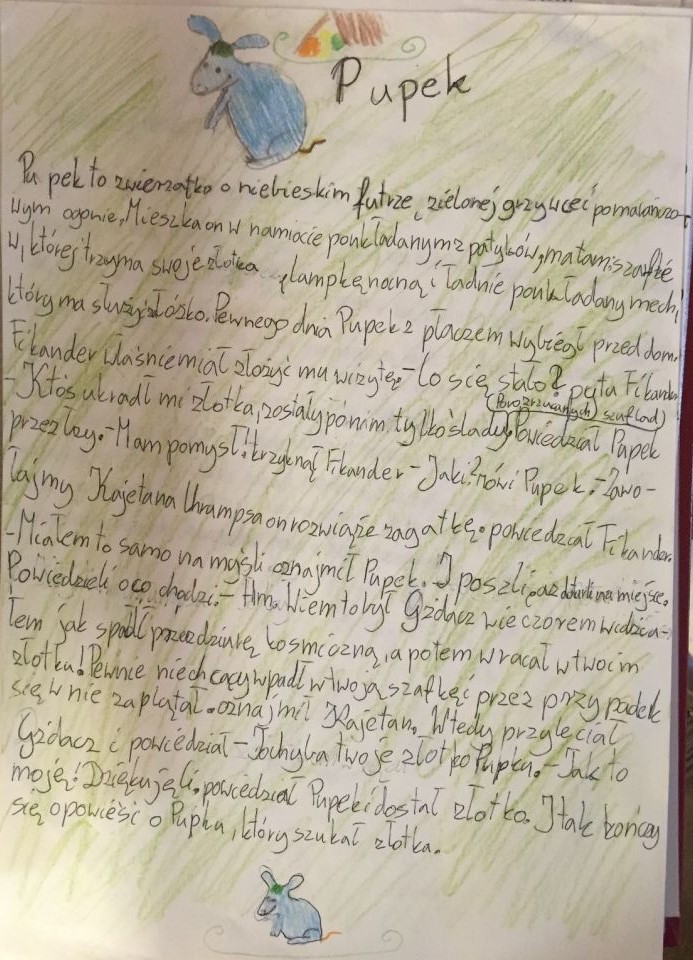 Pupek
Pupek to zwierzątko o niebieskim futrze, zielonej grzywce i pomarańczo-
wym ogonie. Mieszka on w namiocie poukładanym z patyków, ma tam szafkę
w, której trzyma swoje złotka lampkę nocną i ładnie poukładany mech,
który ma służyć łóżko. Pewnego dnia Pupek z płaczem wybiegł przed dom.
Fikander właśnie miał złożyć mu wizytę. - Co się stało? pyta Fikander
- Ktoś ukradł mi złotka, zostały po nim tylko ślady Powiedział Pupek
(Porozrzucanych szuflad)
przez łzy. - Mam pomysł! krzyknął Fikander - Jaki? mówi Pupek. - Zawo-
łajmy Kajetana Chrumpsa on rozwiąże zagatkę. powiedział Fikander.
- Miałem to samo na myśli oznajmił Pupek. I poszli, aż dotarli na miejsce.
Powiedzieli o co chodzi. - Hm. Wiem to był Gżdacz wieczorem widzia-
łem jak spadł przez dziurę kosmiczną, a potem wracał w twoim
złotku! Pewnie niechcący wpadł w twoją szafkę i przez przypadek
się w nie zaplątał. oznajmił Kajetan. Wtedy przyleciał
Gżdacz i powiedział - To chyba twoje złotko Pupku. - Tak to
moje! Dziękuję Ci. powiedział Pupek i dostał złotko. I tak kończy
się opowieść o Pupku, który szukał złotka.